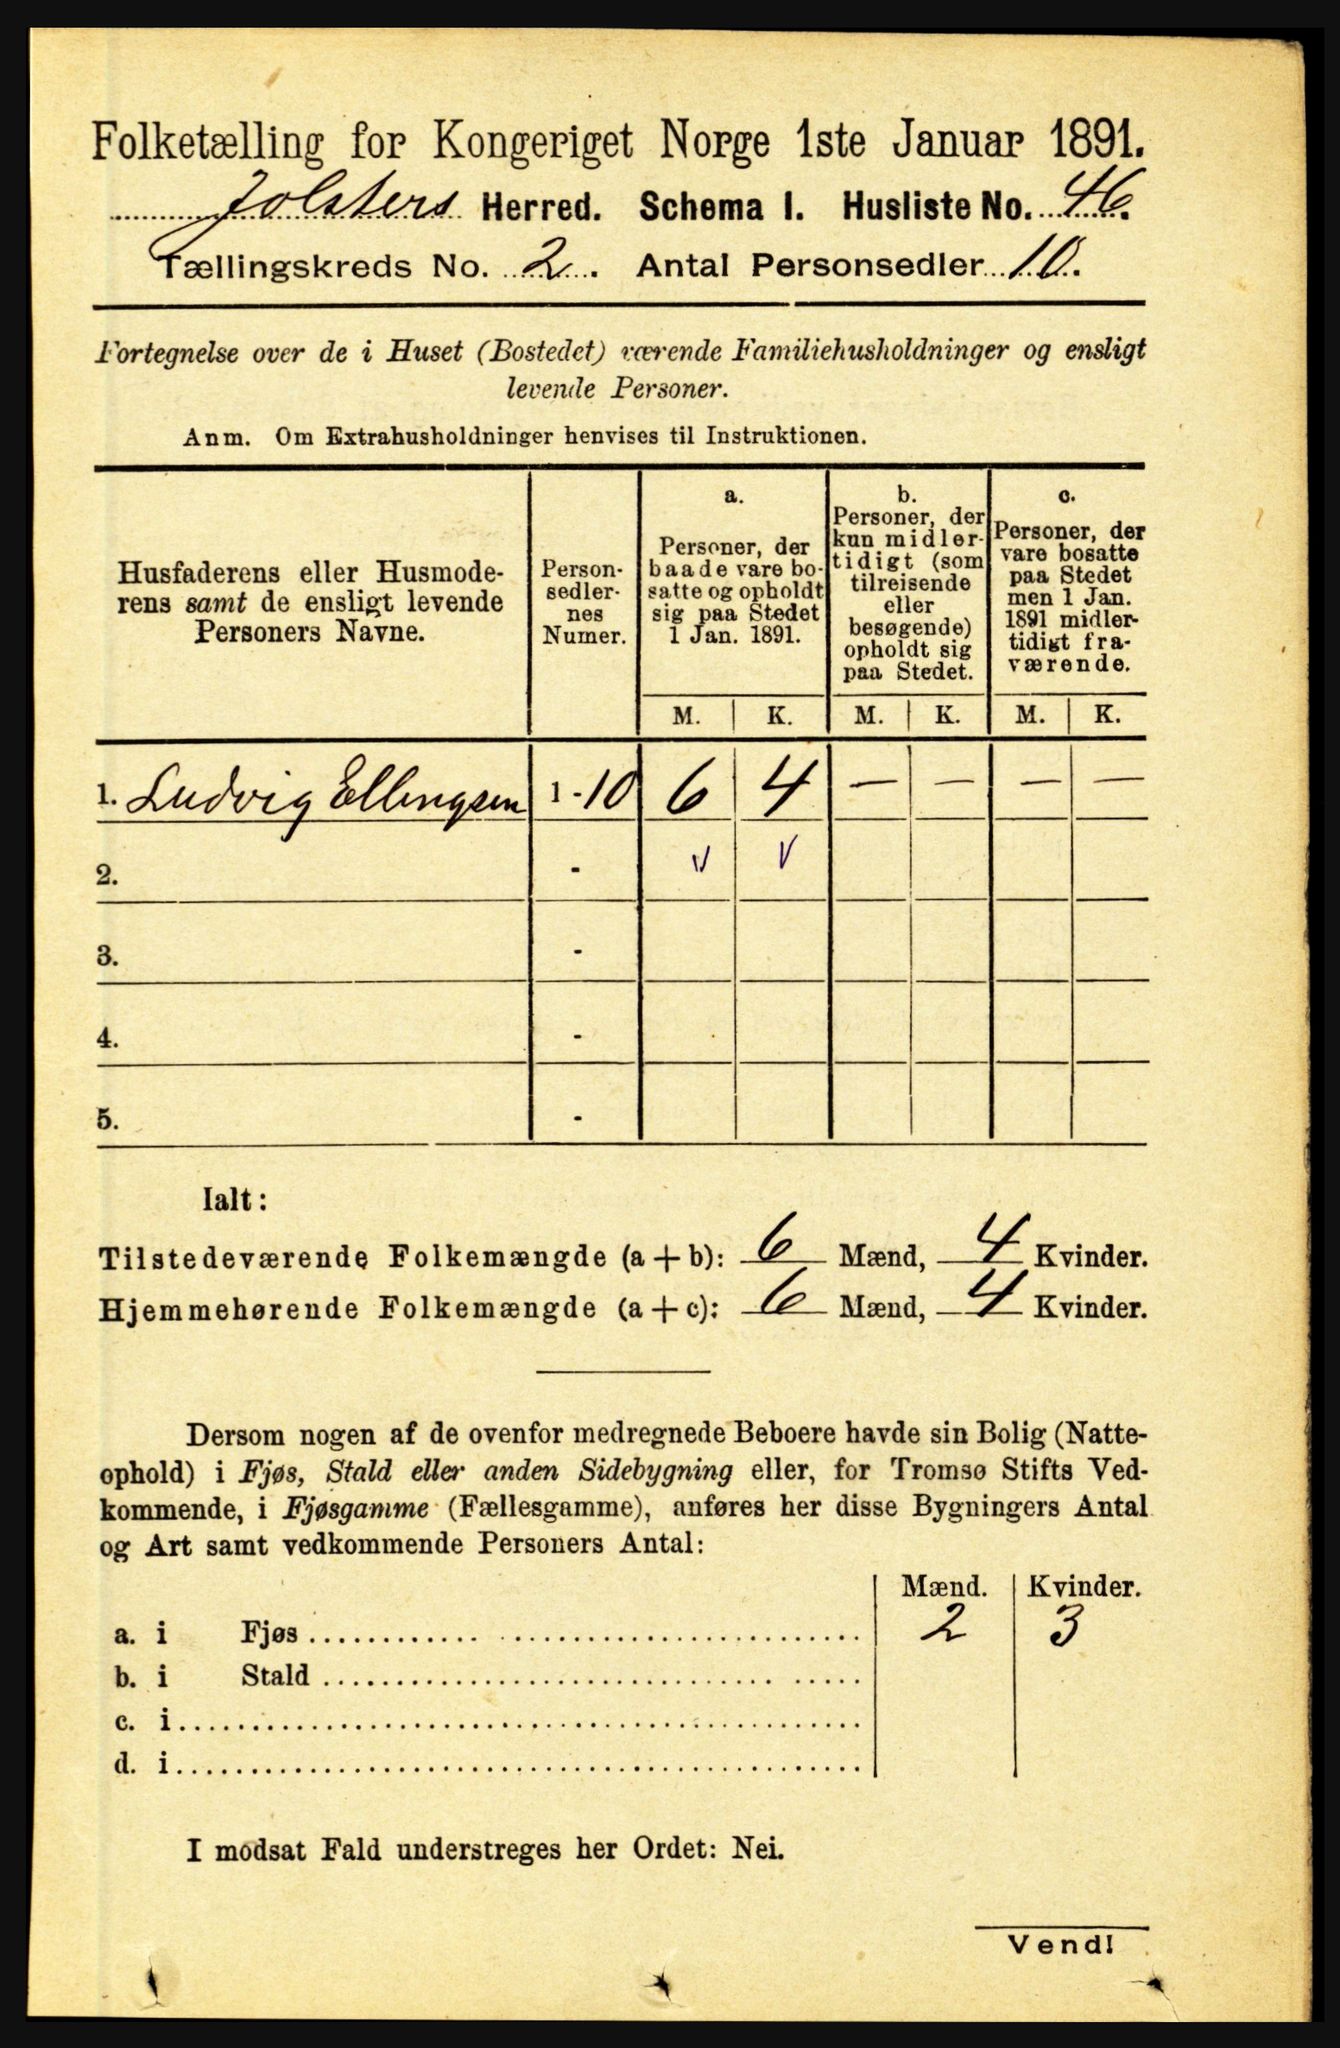 Folketælling for Kongeriget Norge 1ste Januar 1891.
Jolsters Herred. Schema I. Husliste No. 46.
Tællingskreds No. 2. Antal Personsedler 10.
Fortegnelse over de i Huset (Bostedet) værende Familiehusholdninger og ensligt
levende Personer.
Anm. Om Extrahusholdninger henvises til Instruktionen.
Husfaderens eller Husmode-
rens samt de ensligt levende
Personers Navne.
Person-
sedler-
nes
Numer.
a.
Personer, der
baade vare bo-
satte og opholdt
sig paa Stedet
1 Jan. 1891.
b.
Personer, der
kun midler-
tidigt (som
tilreisende
eller
besøgende)
opholdt sig
paa Stedet.
c.
Personer, der
vare bosatte
paa Stedet
men 1 Jan.
1891 midler-
tidigt fra-
værende.
M. K. M. K. M. K.
1. Ludvig Ellingsen 1 - 10 6 4 — — — —
2. - v v
3. -
4. -
5. -
Ialt:
Tilstedeværende Folkemængde (a + b): 6 Mænd, 4 Kvinder.
Hjemmehørende Folkemængde (a + c): 6 Mænd, 4 Kvinder.
Dersom nogen af de ovenfor medregnede Beboere havde sin Bolig (Natte-
ophold) i Fjøs, Stald eller anden Sidebygning eller, for Tromsø Stifts Ved-
kommende, i Fjøsgamme (Fællesgamme), anføres her disse Bygningers Antal
og Art samt vedkommende Personers Antal:
Mænd. Kvinder.
a. i Fjøs 2 3
b. i Stald
c. i
d. i
I modsat Fald understreges her Ordet: Nei.
Vend!